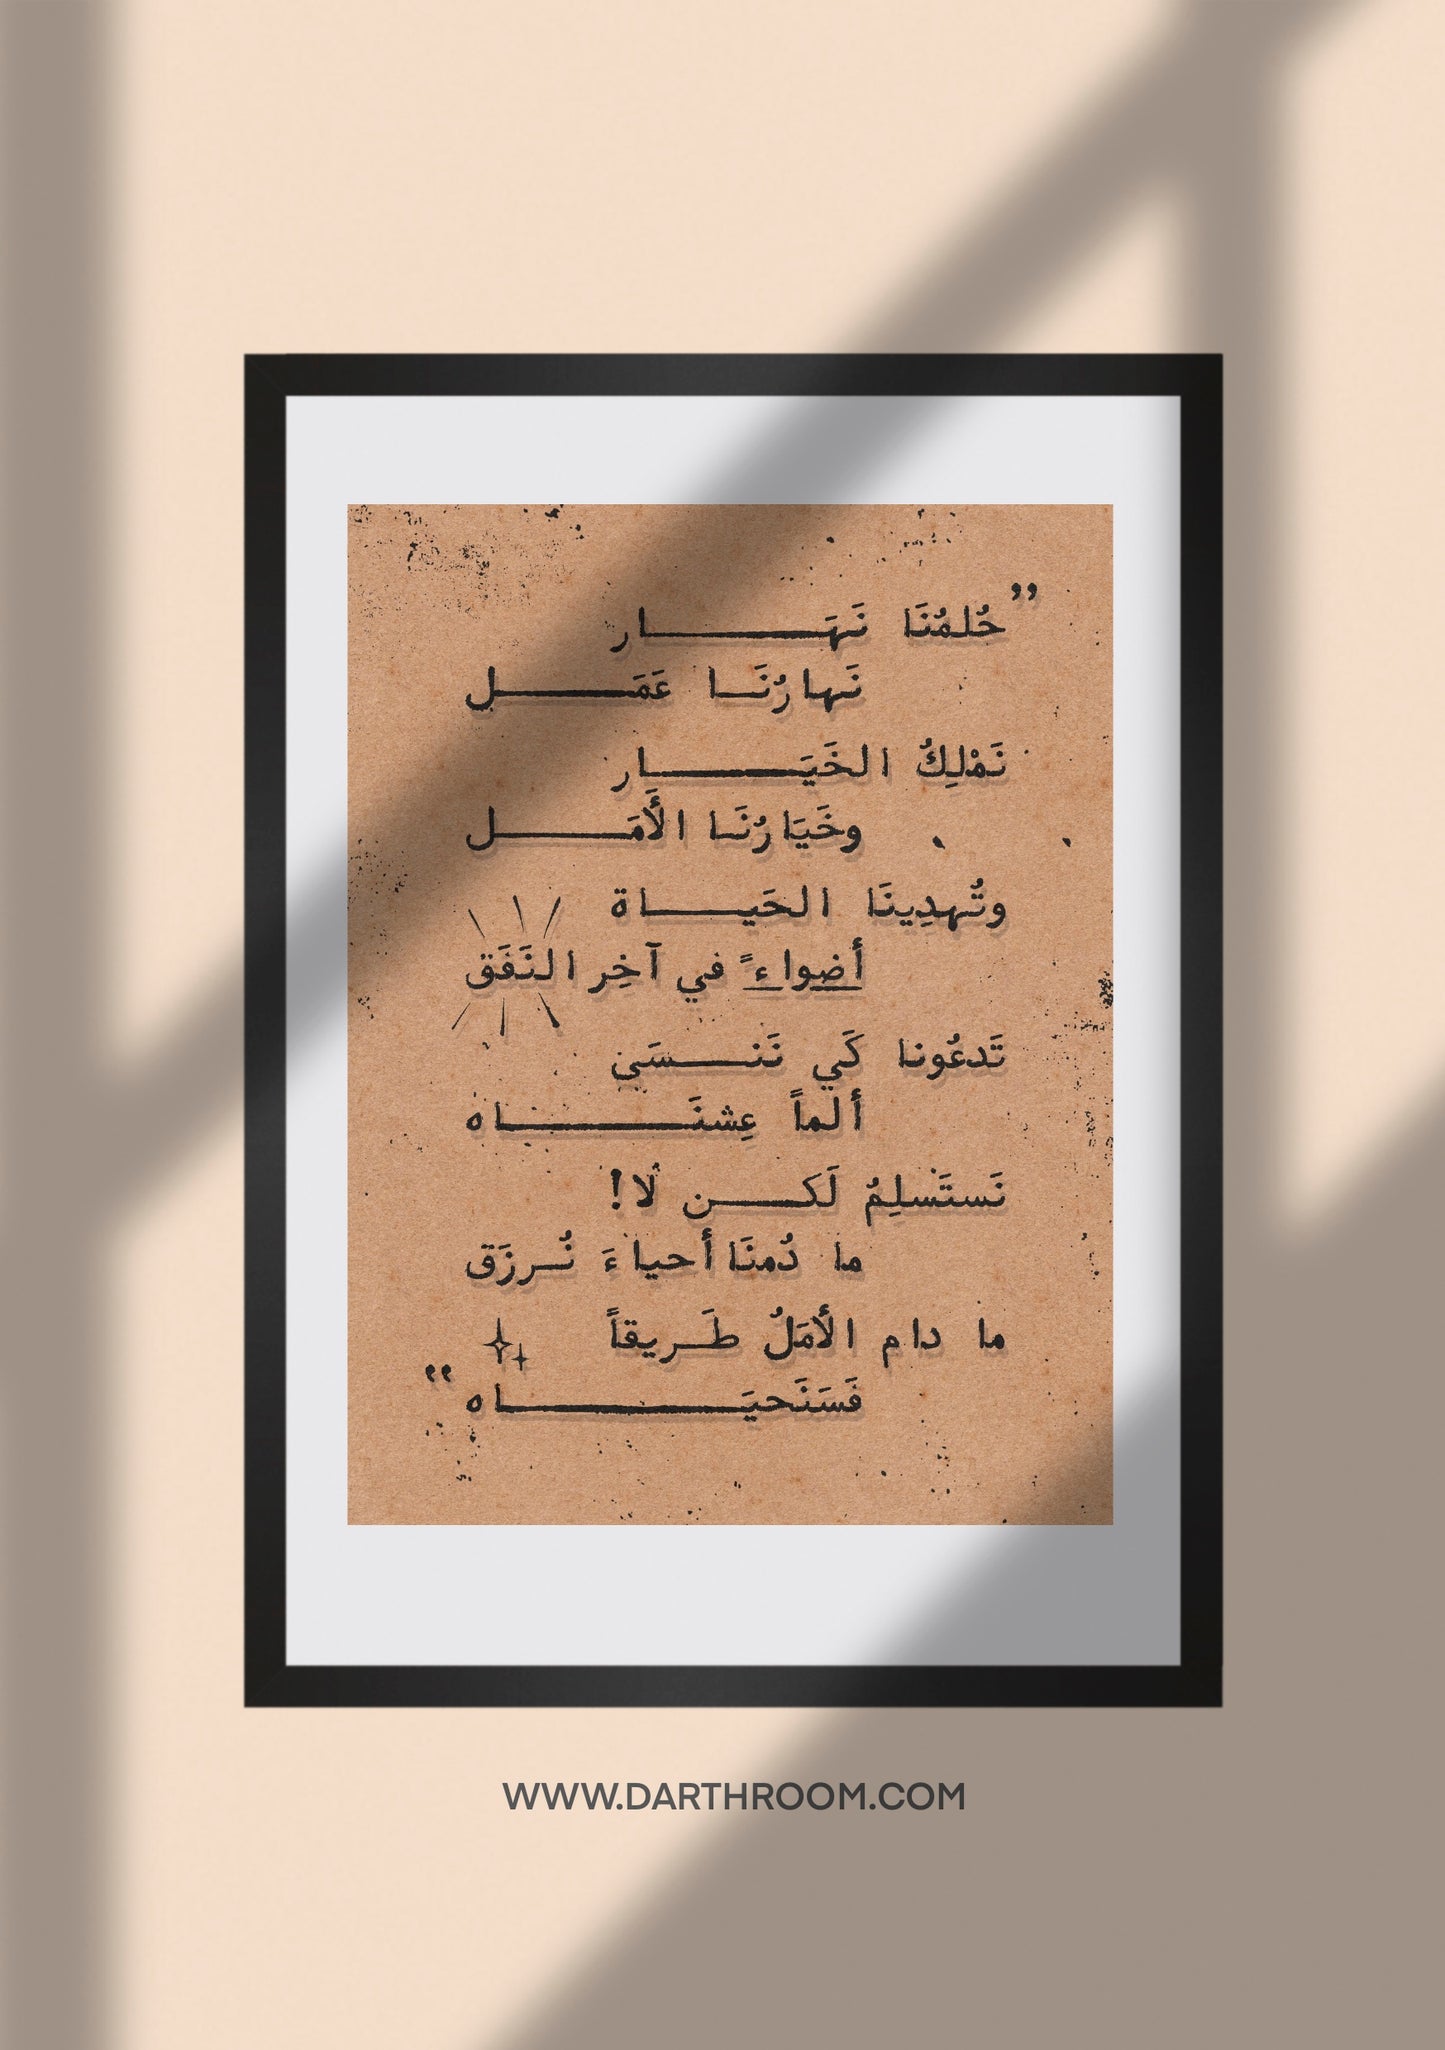 ”حُلمُنَا نَهَـــــار
نَهارُنَـا عَمَـــــل
نَمْلِكُ الخَيَـــــار
وخَيَارُنَا الأَمَـــــل
وتُهدِينَا الحَيـــــاة
أضواءً في آخِر النَفَق
تَدعُونا كَي نَنـــسَى
ألماً عِشنَـــــاه
نَستَسلِمُ لَكـــن لا!
ما دُمنَا أحياءَ نُـرزَق
ما دام الأمَلُ طَـريقاً
فَسَنَحيَـــــاه”
WWW.DARTHROOM.COM